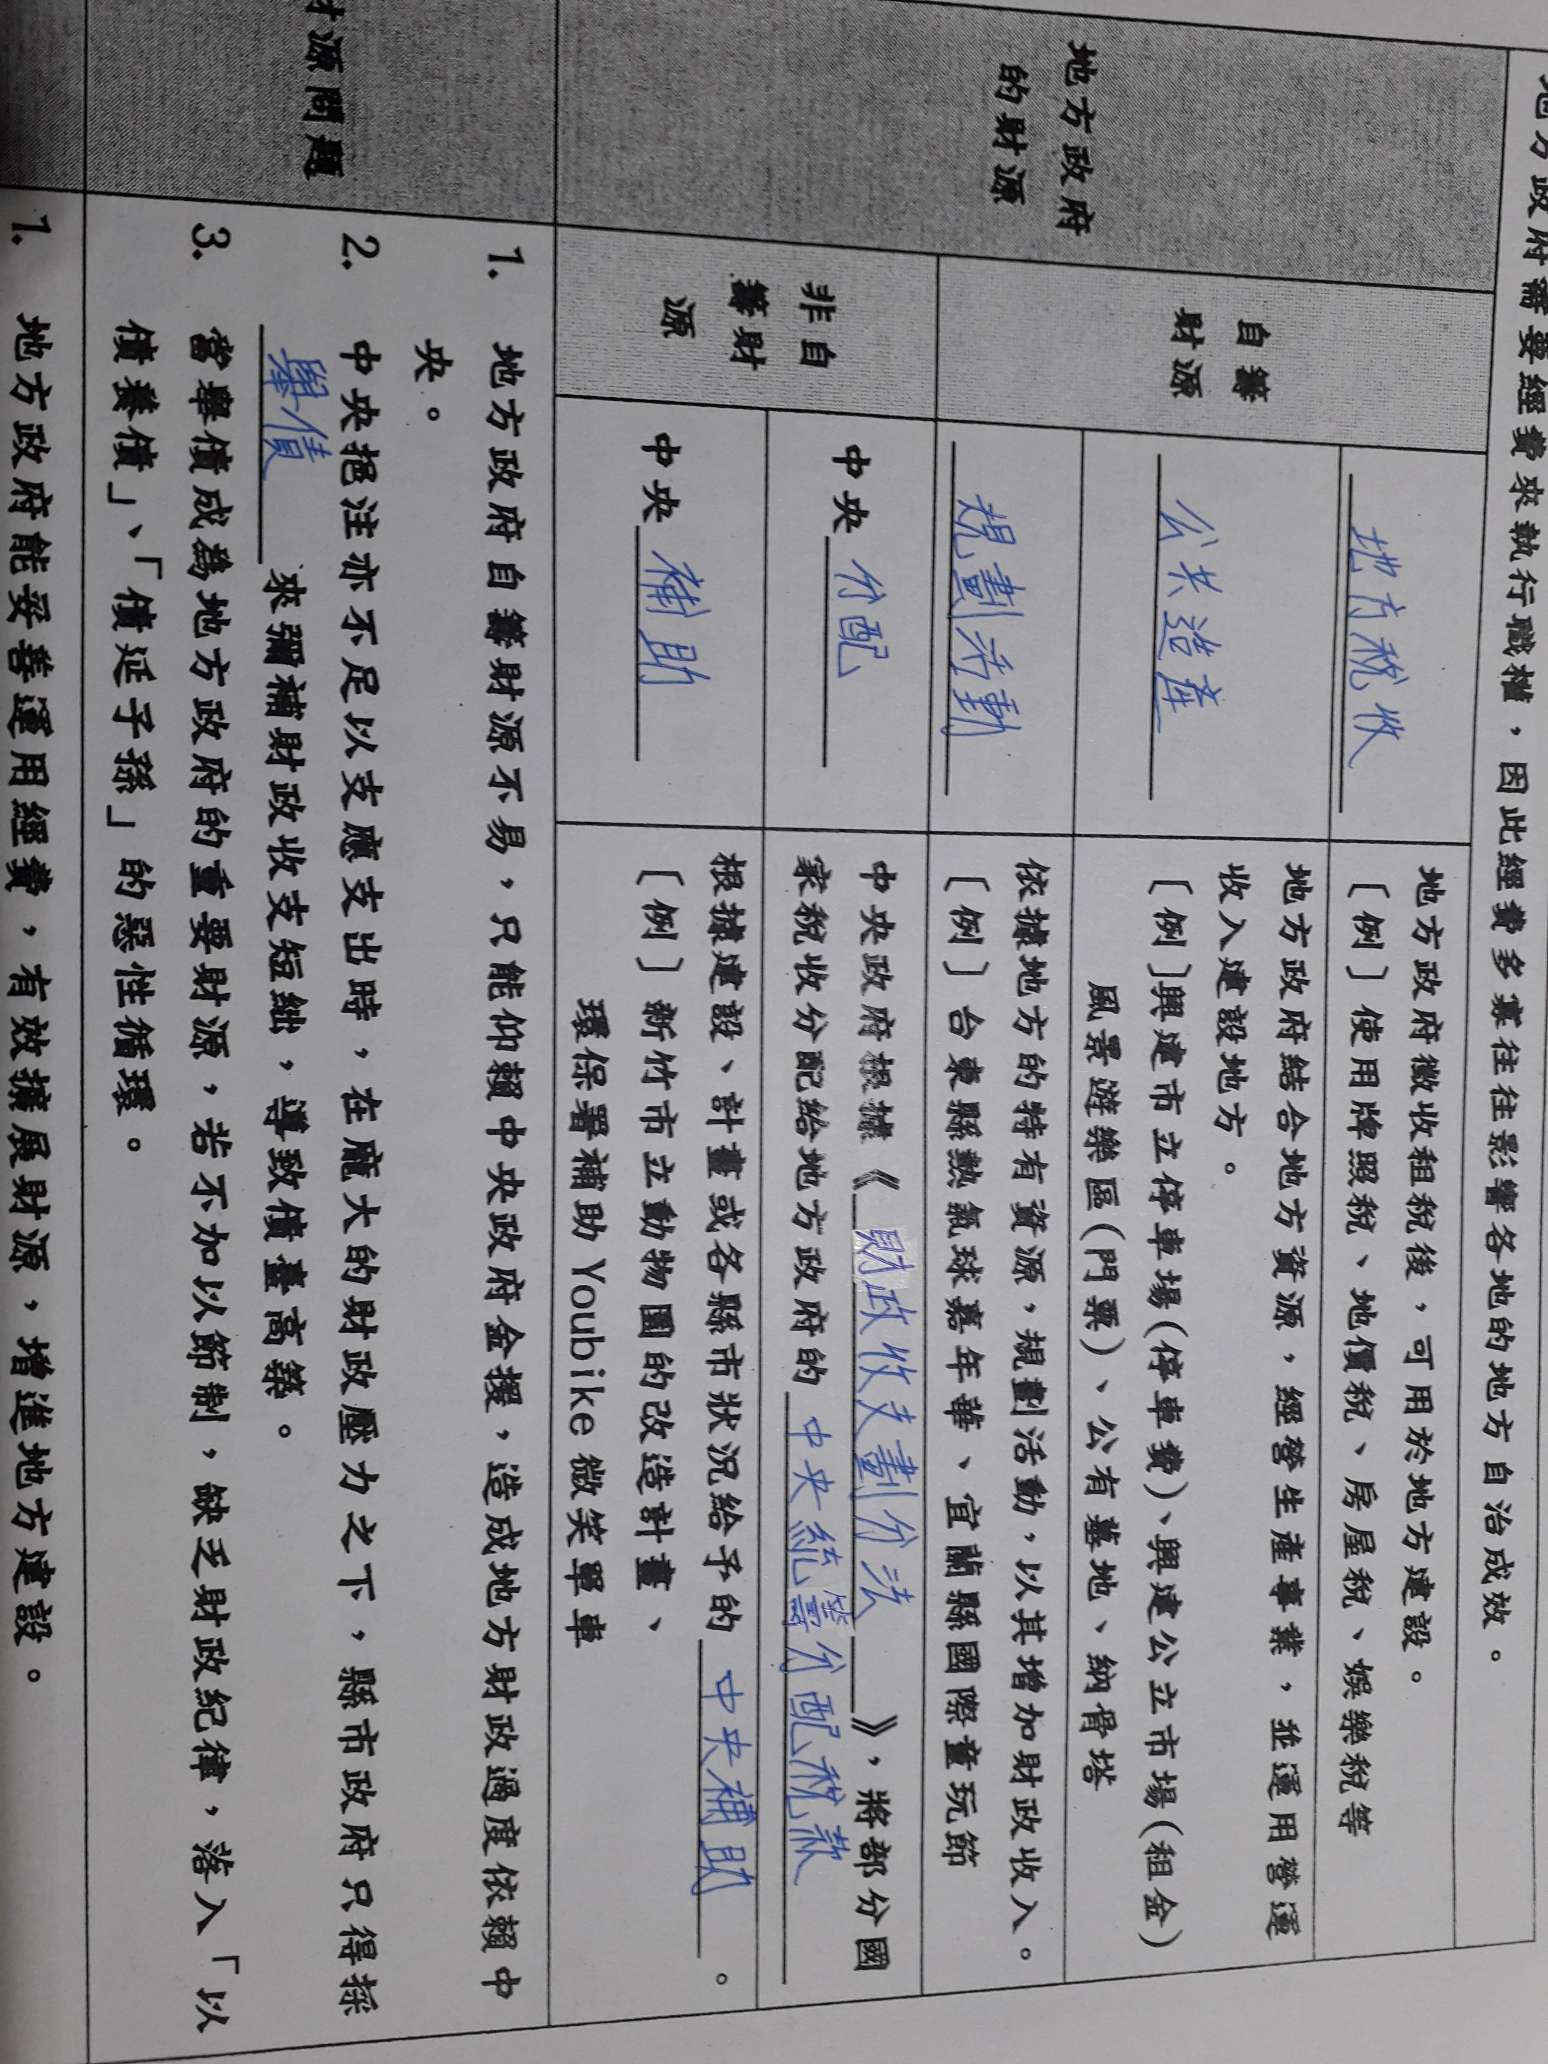 地方政府需要經費來執行職權，因此經費多寡往往影響各地的地方自治成效。
地方政府
的財源
自籌
財源
地方稅收
地方政府徵收租稅後，可用於地方建設。
〔例〕使用牌照稅、地價稅、房屋稅、娛樂稅等
公共造產
地方政府結合地方資源，經營生產事業，並運用營運
收入建設地方。
〔例〕興建市立停車場(停車費)、興建公立市場(租金)
風景遊樂區(門票)、公有墓地、納骨塔
規劃活動
依據地方的特有資源，規劃活動，以其增加財政收入。
〔例〕台東縣熱氣球嘉年華、宜蘭縣國際童玩節
非自
籌財
源
中央分配
中央政府根據《財政收支劃分法》，將部分國
家稅收分配給地方政府的中央統籌分配稅款
中央補助
根據建設、計畫或各縣市狀況給予的中央補助。
〔例〕新竹市立動物園的改造計畫、
環保署補助 Youbike 微笑單車
財源問題
1. 地方政府自籌財源不易，只能仰賴中央政府金援，造成地方財政過度依賴中
央。
2. 中央挹注亦不足以支應支出時，在龐大的財政壓力之下，縣市政府只得採
舉債來彌補財政收支短絀，導致債臺高築。
3. 當舉債成為地方政府的重要財源，若不加以節制，缺乏財政紀律，落入「以
債養債」、「債延子孫」的惡性循環。
1. 地方政府能妥善運用經費，有效擴展財源，增進地方建設。